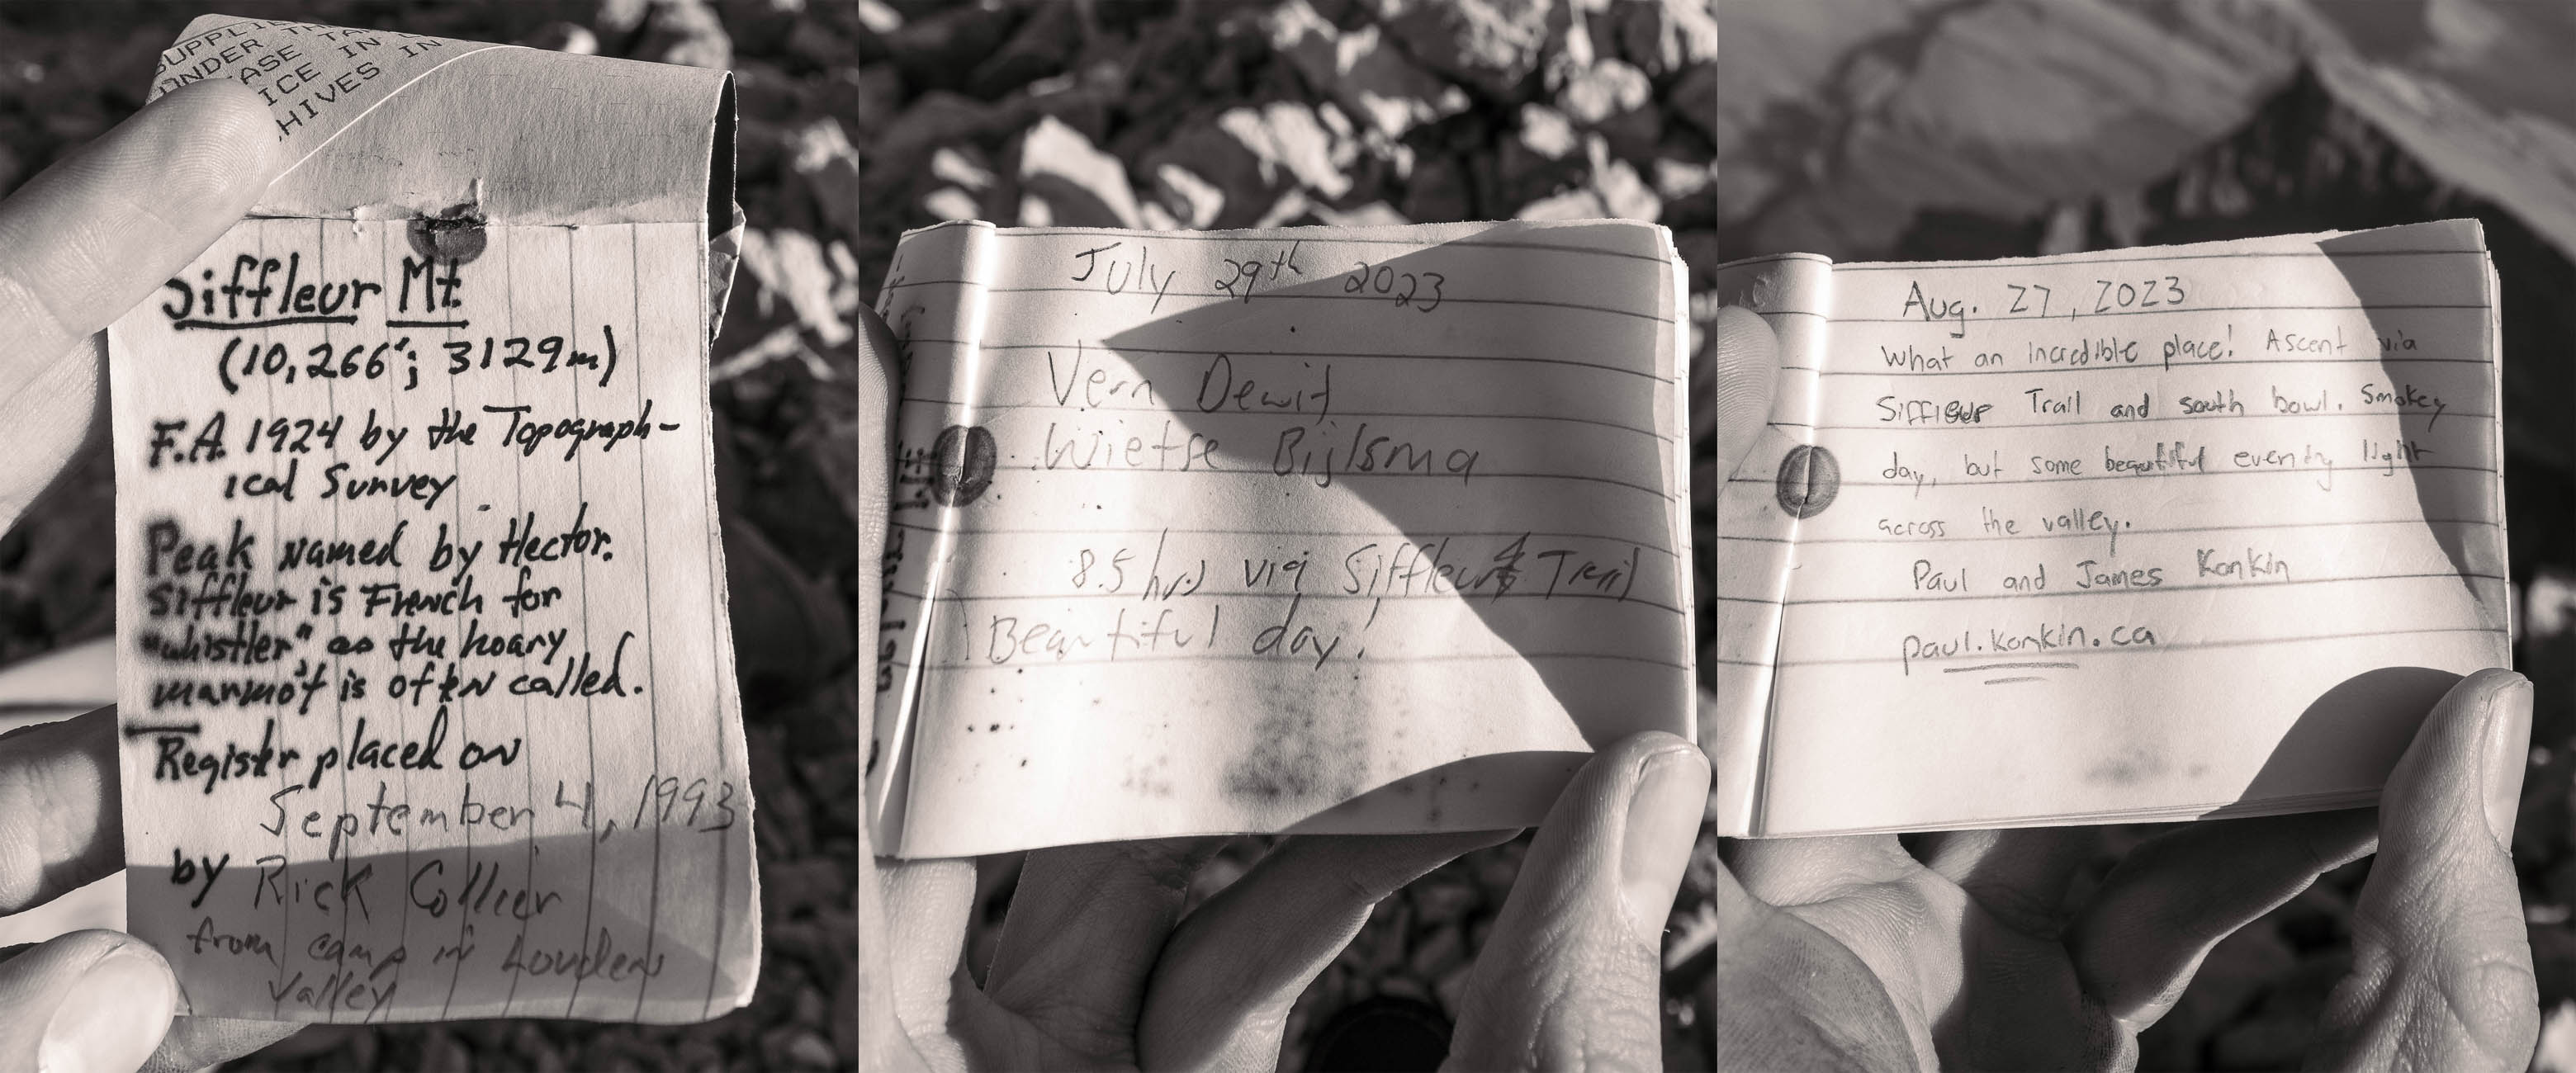 SUPPLI
UNDER TH
EASE TA
ICE IN
HIVES IN
Siffleur Mt
(10,266'; 3129m)
F.A. 1924 by the Topograph-
ical Survey
Peak named by Hector.
Siffleur is French for
"whistler" as the hoary
marmot is often called.
Register placed on
September 4, 1993
by Rick Collier
from camp in Louden
Valley
July 29th 2023
Vern Dewit
Wietse Bijlsma
8.5 hrs via Siffleur Trail
Beautiful day!
Aug. 27, 2023
What an incredible place! Ascent via
Siffleur Trail and south bowl. Smokey
day, but some beautiful evening light
across the valley.
Paul and James Konkin
paul.konkin.ca